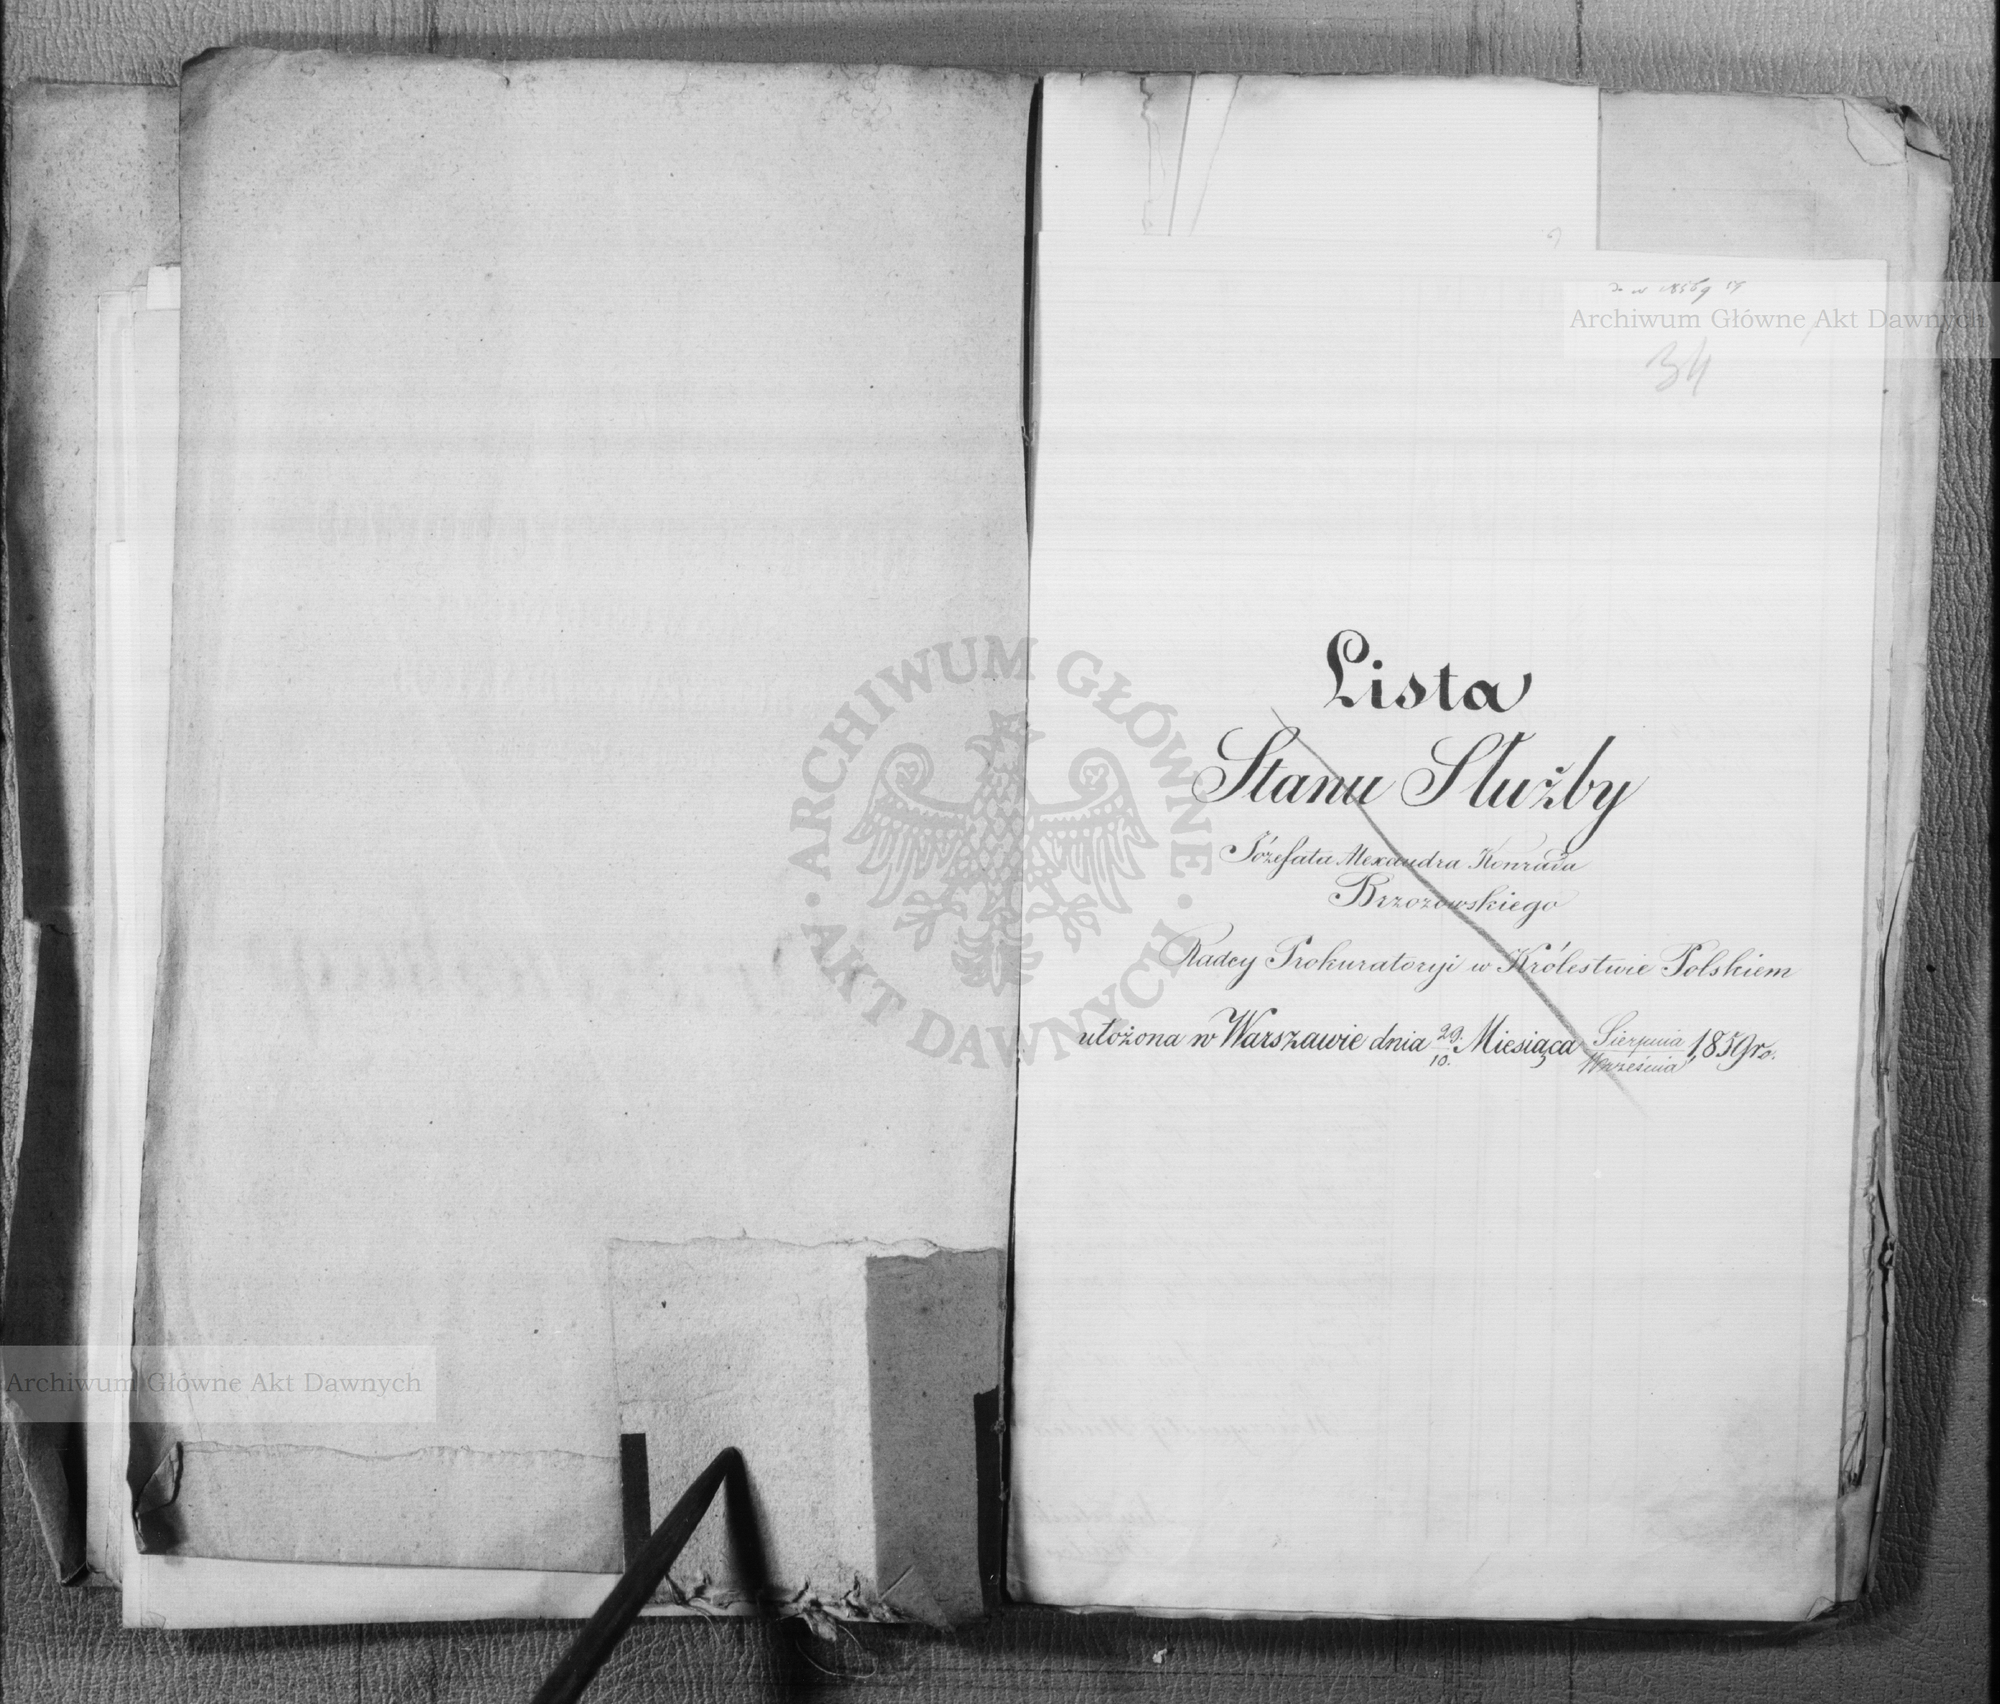 Archiwum Główne Akt Dawnych
34
Lista
Stanu Służby
Józefata Alexandra Konrada
Brzozowskiego
Radcy Prokuratoryi w Królestwie Polskiem
ułożona w Warszawie dnia 29./10. Miesiąca Sierpnia/Września 1859 ro.
ARCHIWUM GŁÓWNE AKT DAWNYCH
Archiwum Główne Akt Dawnych